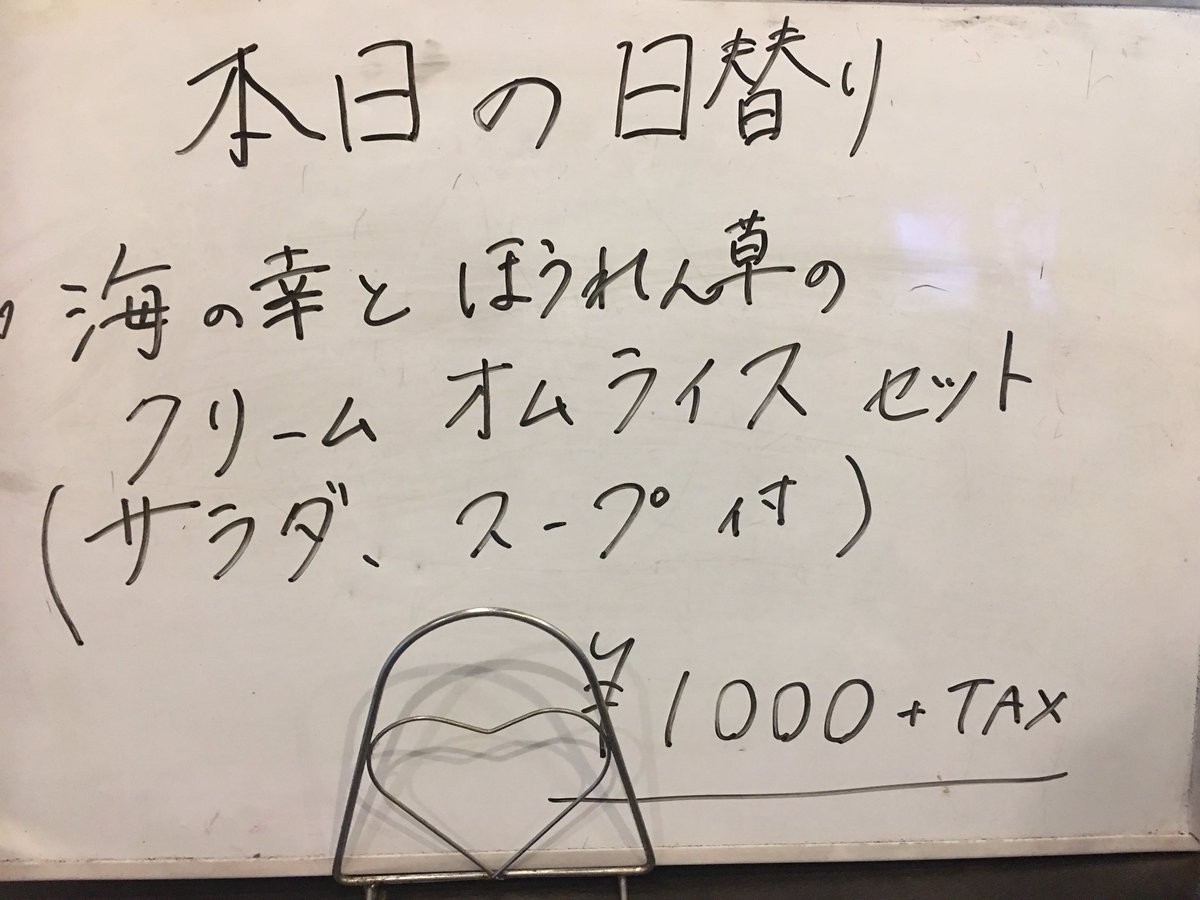 本日の日替り
海の幸とほうれん草の
クリームオムライスセット
(サラダ、スープ付)
¥1000+TAX